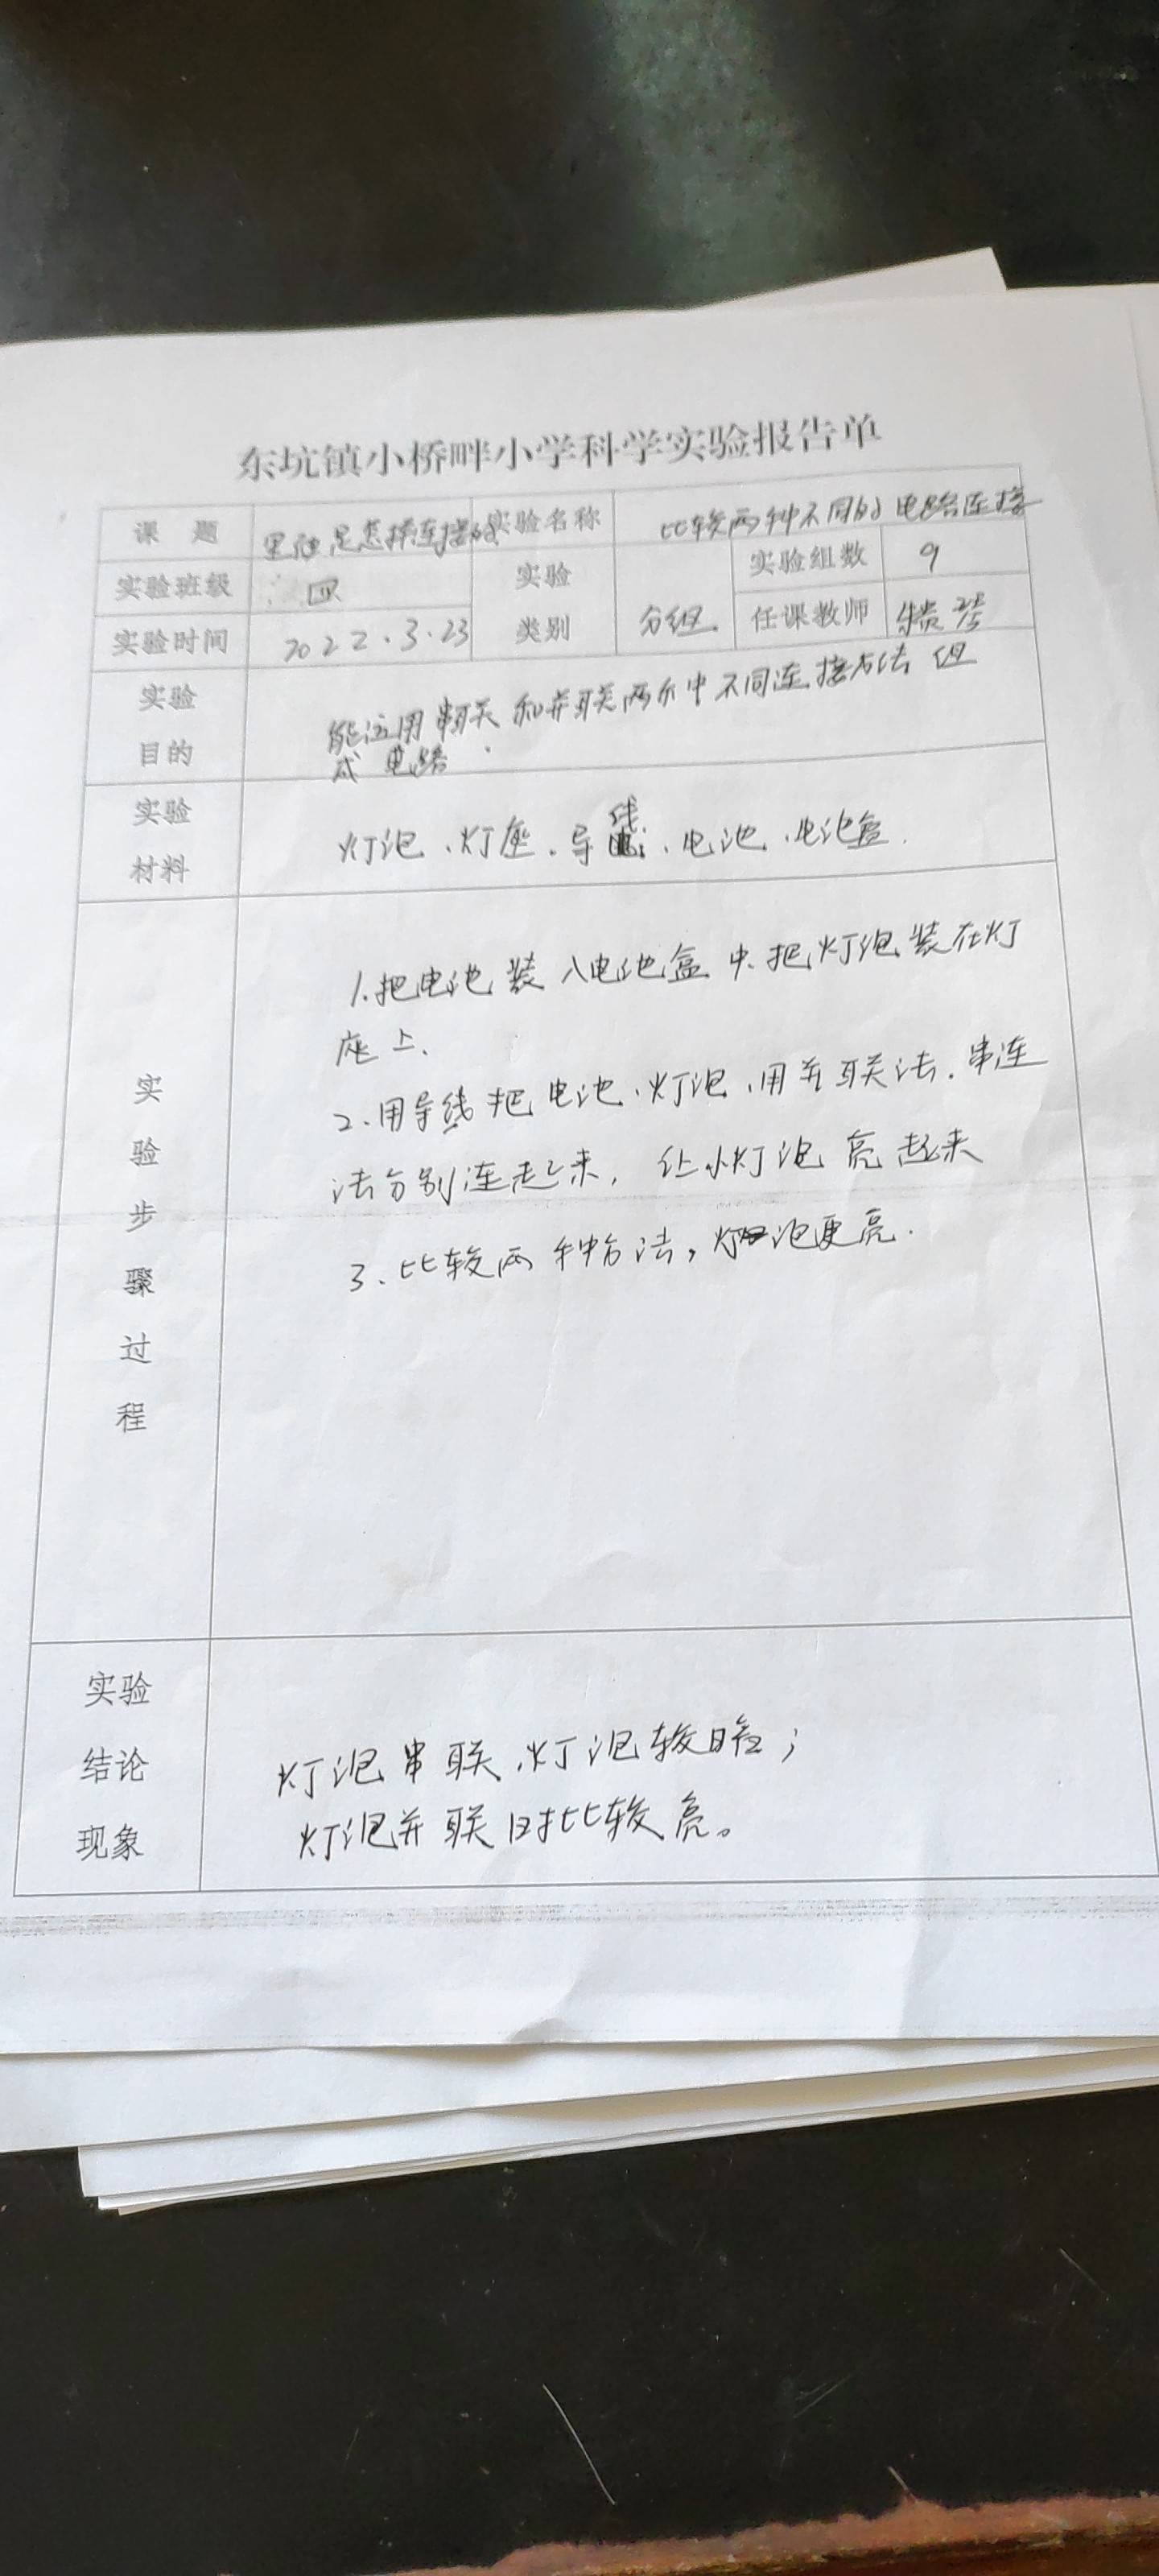 东坑镇小桥畔小学科学实验报告单
课 题 里面是怎样连接的 实验名称 比较两种不同的电路连接
实验班级 四 实验类别 分组 实验组数 9
实验时间 2022.3.23 任课教师
实验目的 能运用串联和并联两个中不同连接方法组
成电路
实验材料 灯泡、灯座、导线、电池、电池盒.
实验步骤过程
1.把电池装入电池盒中.把灯泡装在灯
座上.
2.用导线把电池、灯泡、用并联法.串连
法分别连起来,让小灯泡亮起来
3.比较两种方法,灯泡更亮.
实验结论现象
灯泡串联,灯泡较暗;
灯泡并联时比较亮。